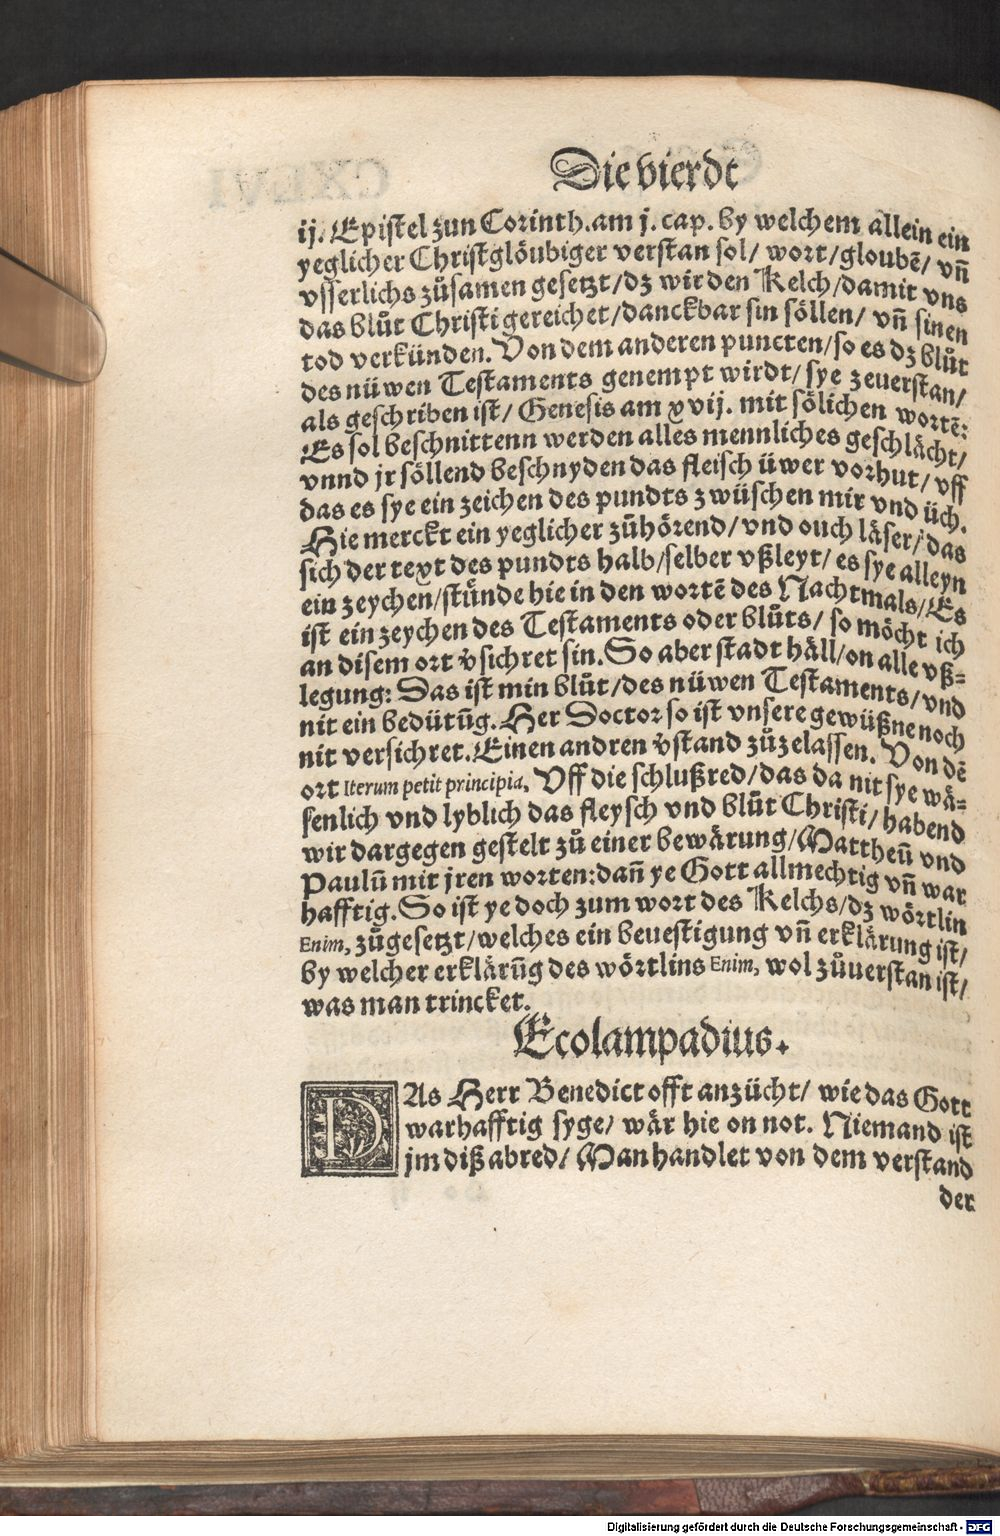 Die vierdt
ij. Epistel zun Corinth. am j. cap. by welchem allein ein
yeglicher Christglöubiger verstan sol/ wort/ gloubē/ vn̄
vsserlichs zůsamen gesetzt/ dz wir den Kelch/ damit vns
das blůt Christi gereichet/ danckbar sin söllen/ vn̄ sinen
tod verkünden. Von dem anderen puncten/ so es dz blůt
des nüwen Testaments genempt wirdt/ sye zeuerstan/
als geschriben ist/ Genesis am xvij. mit sölichen wortē:
Es sol beschnittenn werden alles mennliches geschlächt/
vnnd jr söllend beschnyden das fleisch üwer vorhut/ vff
das es sye ein zeichen des pundts zwüschen mir vnd üch.
Hie merckt ein yeglicher zůhörend/ vnd ouch läser/ das
sich der text des pundts halb/ selber vßleyt/ es sye alleyn
ein zeychen/ stůnde hie in den wortē des Nachtmals/ Es
ist ein zeychen des Testaments oder blůts/ so möcht ich
an disem ort v̄sichret sin. So aber stadt häll/ on alle vß-
legung: Das ist min blůt/ des nüwen Testaments/ vnd
nit ein bedütūg. Her Doctor so ist vnsere gewüßne noch
nit versichret. Einen andren v̄stand zůzelassen. Von dē
ort Iterum petit principia. Vff die schlußred/ das da nit sye wä-
senlich vnd lyblich das fleysch vnd blůt Christi/ habend
wir dargegen gestelt zů einer bewärung/ Mattheū vnd
Paulū mit jren worten: dan̄ ye Gott allmechtig vn̄ war
hafftig. So ist ye doch zum wort des Kelchs/ dz wörtlin
Enim, zůgesetzt/ welches ein beuestigung vn̄ erklärung ist/
by welcher erklärūg des wörtlins Enim, wol zůuerstan ist/
was man trincket.
Ecolampadius.
DAs Herr Benedict offt anzücht/ wie das Gott
warhafftig syge/ wär hie on not. Niemand ist
jm diß abred/ Man handlet von dem verstand
der
Digitalisierung gefördert durch die Deutsche Forschungsgemeinschaft - DFG